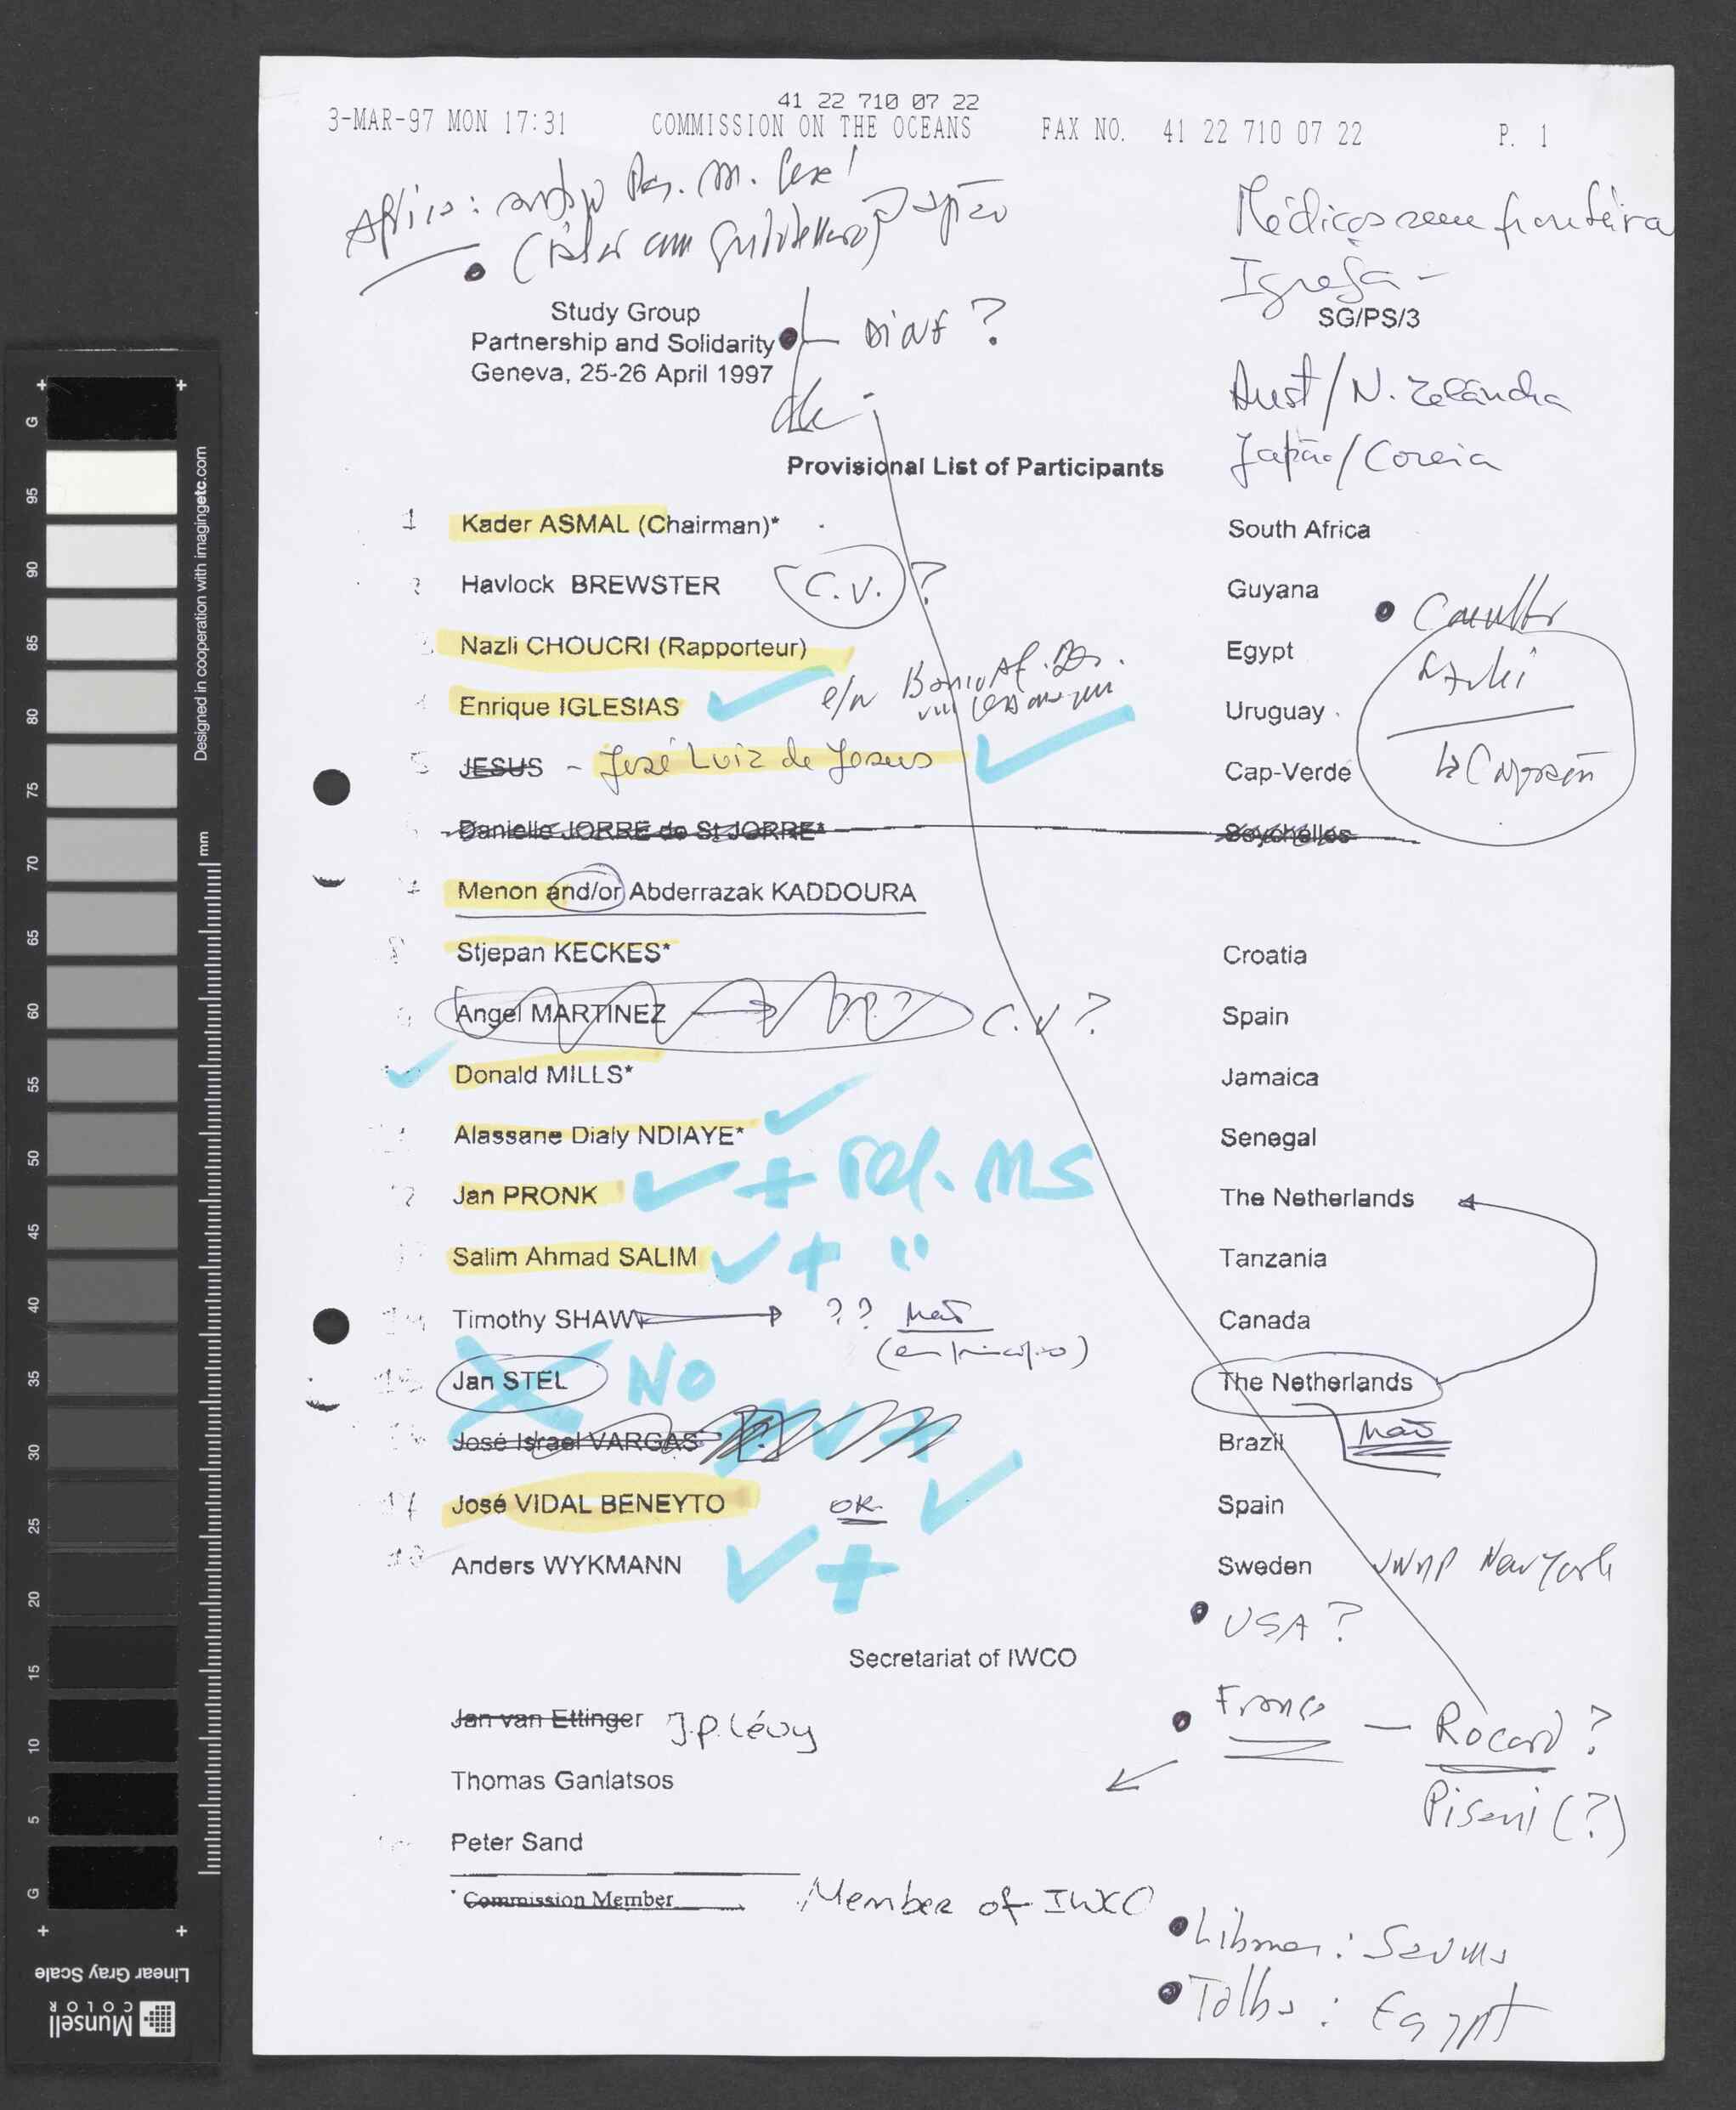 41 22 710 07 22
3-MAR-97 MON 17:31 COMMISSION ON THE OCEANS FAX NO. 41 22 710 07 22 P. 1
Médicos sem fronteira
Igreja -
Study Group
Partnership and Solidarity
Geneva, 25-26 April 1997
SG/PS/3
Aust/N. Zelândia
Japão/Coreia
Provisional List of Participants
1 Kader ASMAL (Chairman)* South Africa
2 Havlock BREWSTER C.V. ? Guyana
3 Nazli CHOUCRI (Rapporteur) Egypt
4 Enrique IGLESIAS Uruguay
5 JESUS - José Luiz de Jesus Cap-Verde
Danielle JORRE de St JORRE* Seychelles
Menon and/or Abderrazak KADDOURA
8 Stjepan KECKES* Croatia
9 Angel MARTINEZ C.V? Spain
Donald MILLS* Jamaica
Alassane Dialy NDIAYE* Senegal
Jan PRONK + tel. MS The Netherlands
Salim Ahmad SALIM + " Tanzania
Timothy SHAW ?? Não Canada
(em princípio)
15 Jan STEL NO The Netherlands
José Israel VARGAS Brazil Não
17 José VIDAL BENEYTO OK Spain
18 Anders WYKMANN + Sweden New York
USA ?
Secretariat of IWCO
France — Rocard ?
Jan van Ettinger J.P. Lévy
Pisani (?)
Thomas Ganiatsos
Peter Sand
* Commission Member Member of IWCO
Egypt
G 95 90 85 80 75 70 65 60 55 50 45 40 35 30 25 20 15 10 5 G
mm
Designed in cooperation with imagingetc.com
Linear Gray Scale
Munsell
COLOR